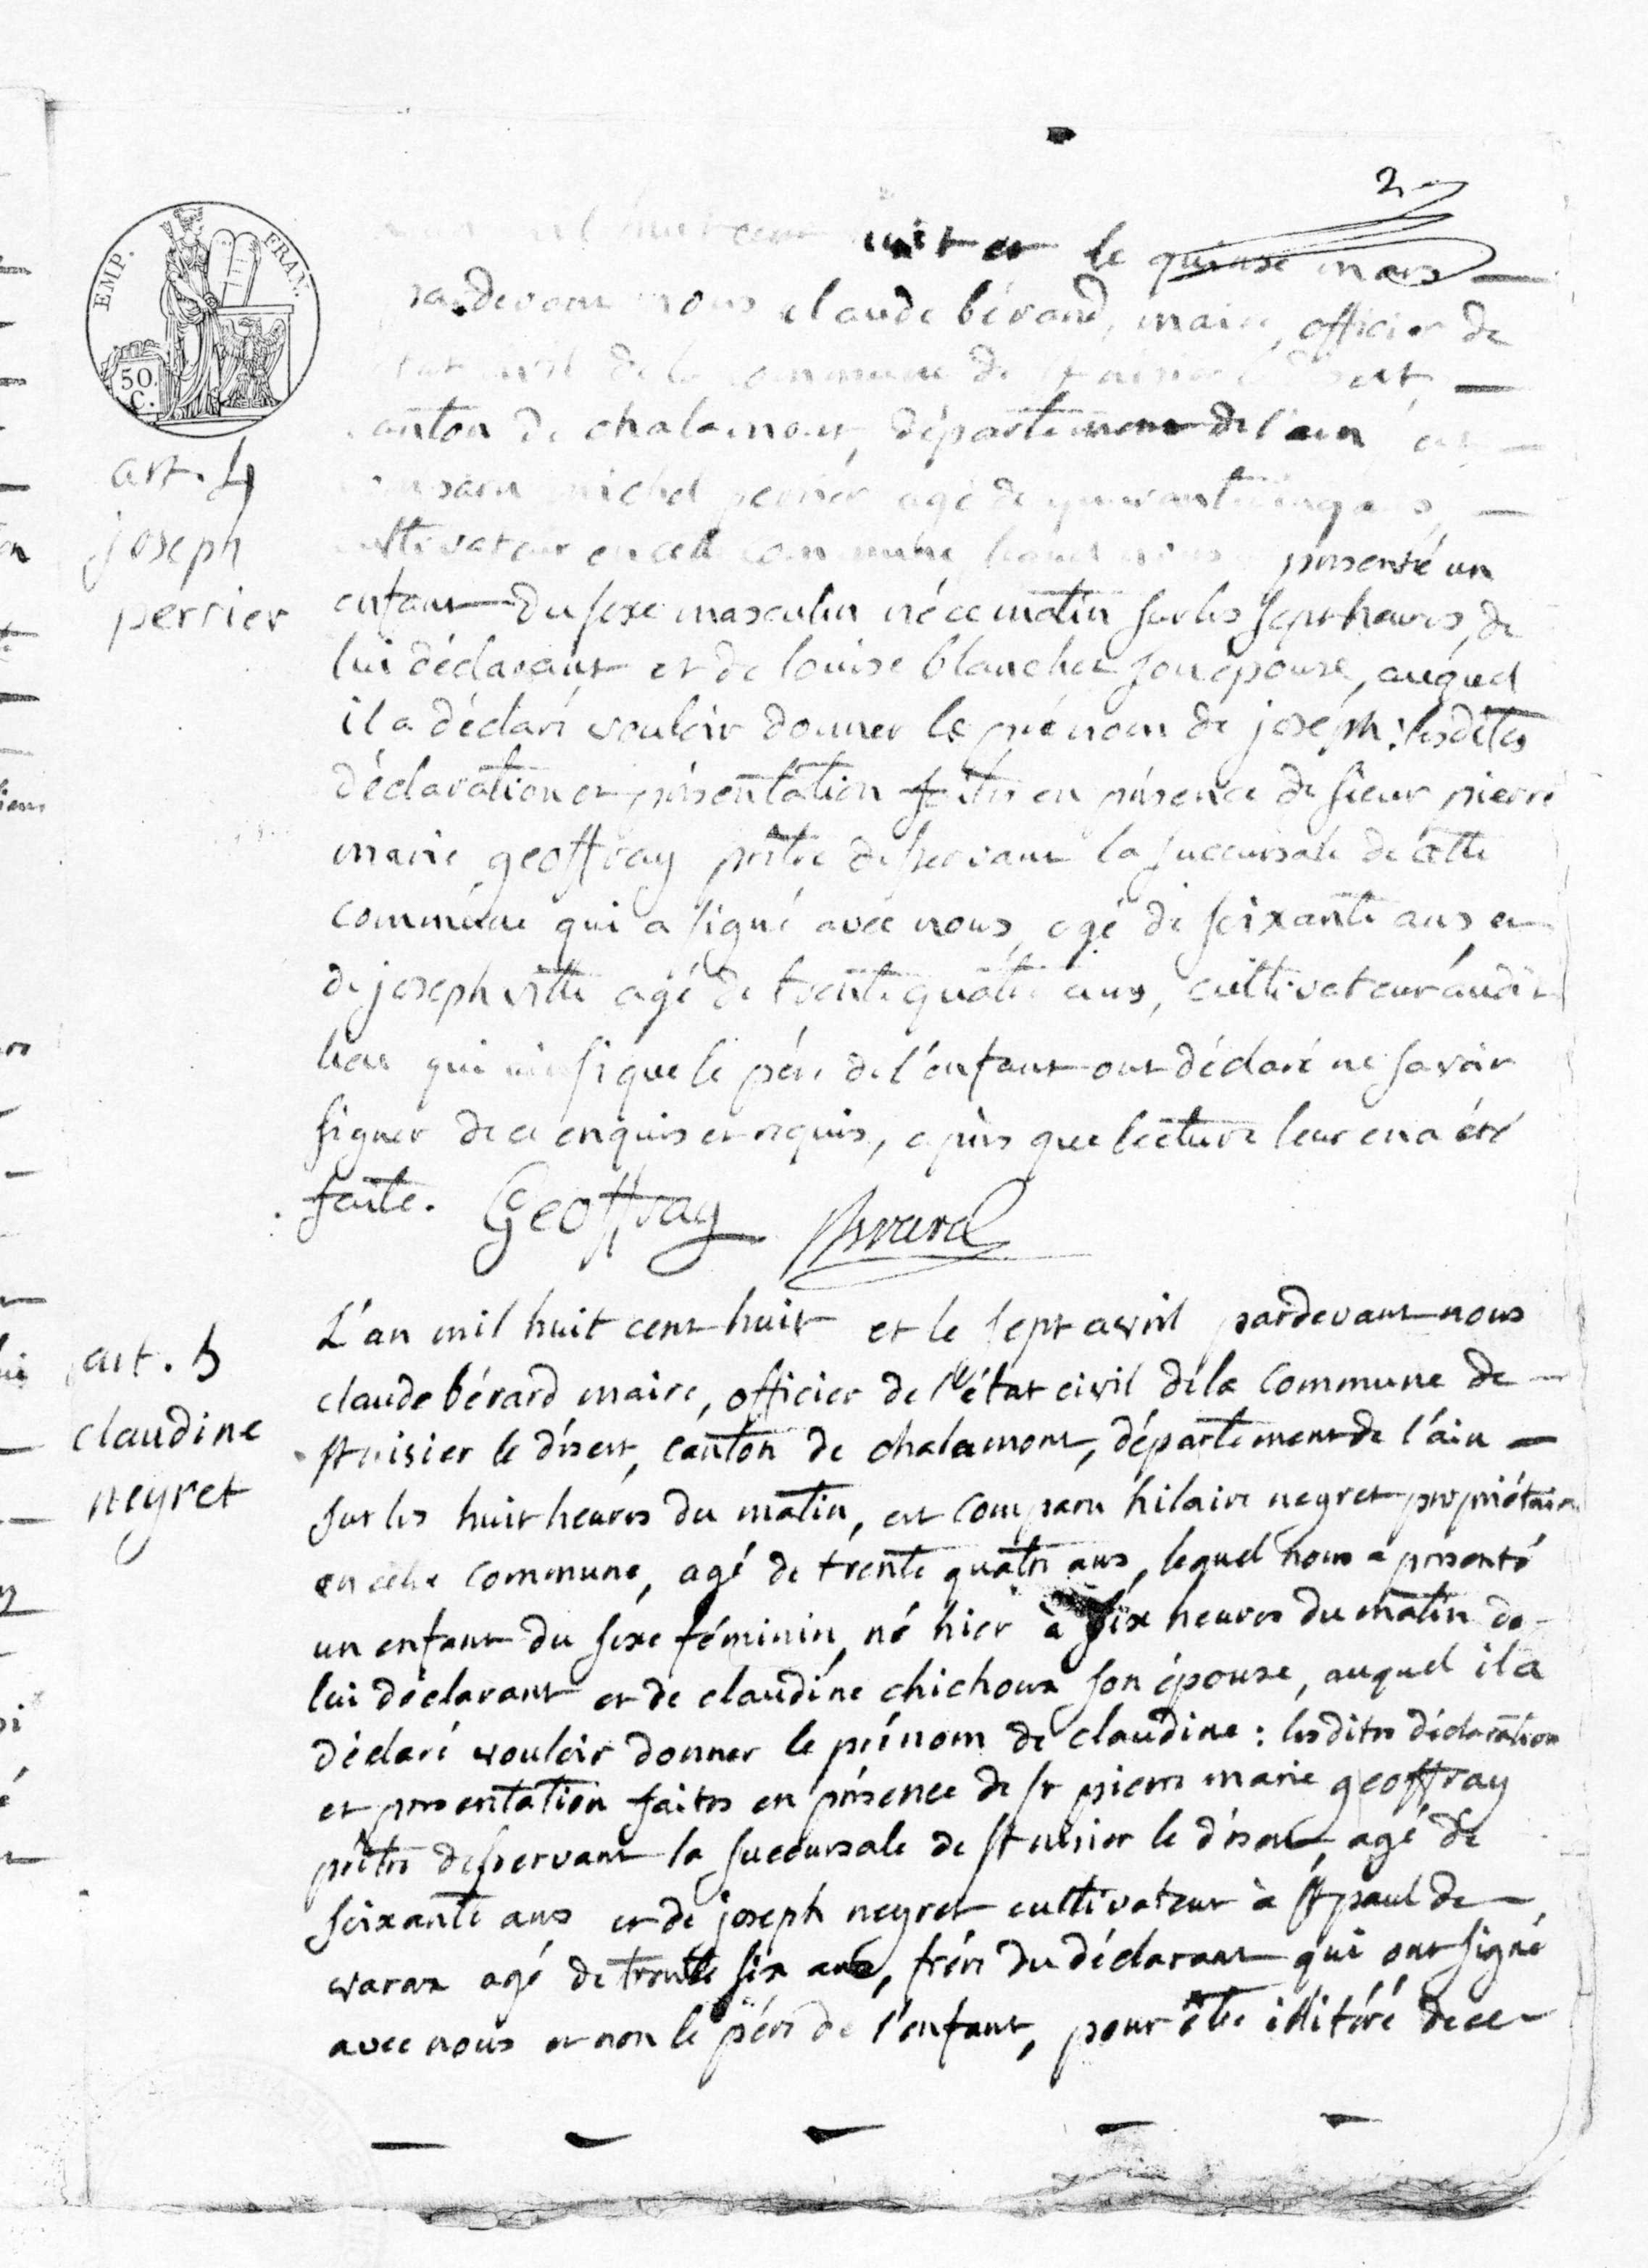 2
EMP. FRAN.
50. C.
huit cent huit et le quinze mars
pardevant nous claude bérard, maire, officier de
état civil de la commune de st nisier le désert,
canton de chalamont, département de l'ain est
comparu michel perrier agé de quarante cinq ans,
cultivateur en cette commune lequel nous présenté un
art. 4
joseph
perrier
enfant du sexe masculin né ce matin sur les sept heures, de
lui déclarant et de louise blanchet son épouse, auquel
il a déclaré vouloir donner le prénom de joseph : lesdites
déclaration et présentation faites en présence de sieur pierre
marie geoffray prêtre desservant la succursale de cette
commune qui a signé avec nous, agé de soixante ans et
de joseph vitte agé de trente quatre ans, cultivateur audit
lieu qui ainsi que le père de l'enfant ont déclaré ne savoir
signer de ce enquis et requis, après que lecture leur en a été
faite. Geoffray Bérard
art. 5
claudine
neyret
L'an mil huit cent huit et le sept avril pardevant nous
claude bérard maire, officier de l'état civil de la commune de
st nisier le désert, canton de chalamont, département de l'ain
sur les huit heures du matin, est comparu hilaire neyret propriétaire
en cette commune, agé de trente quatre ans, lequel nous a présenté
un enfant du sexe féminin, né hier à six heures du matin de
lui déclarant et de claudine chichoux son épouse, auquel il a
déclaré vouloir donner le prénom de claudine : lesdites déclaration
et présentation faites en présence de sr pierre marie geoffray
prêtre desservant la succursale de st nisier le désert, agé de
soixante ans et de joseph neyret cultivateur à st paul de
varax agé de trente six ans, frère du déclarant qui ont signé
avec nous et non le père de l'enfant, pour être illitéré de ce